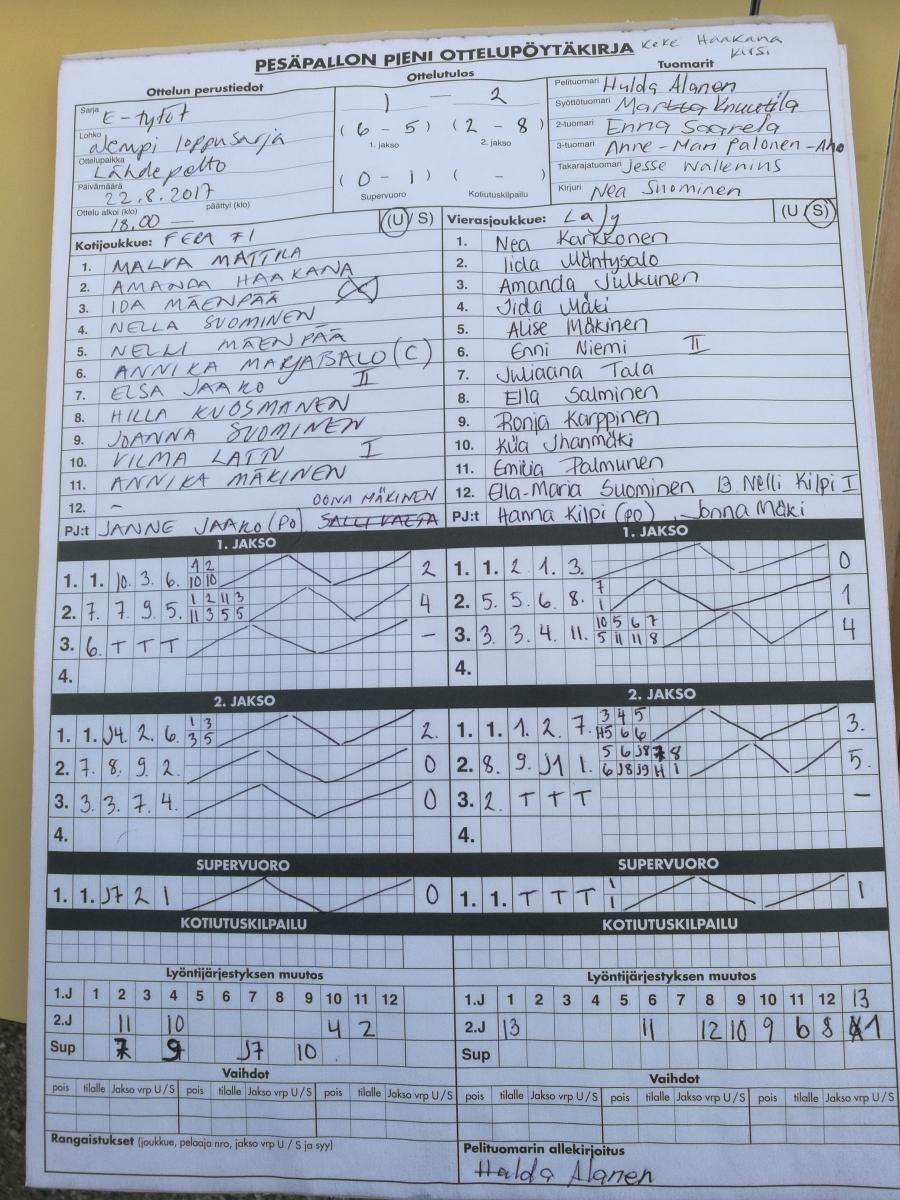 PESÄPALLON PIENI OTTELUPÖYTÄKIRJA Keke Haakana
Kirsi
Ottelun perustiedot
Sarja E-tytöt
Lohko alempi loppusarja
Ottelupaikka Lähdepelto
Päivämäärä 22.8.2017
Ottelu alkoi (klo) 18.00 — päättyi (klo)
Ottelutulos
1 — 2
(6 - 5) (2 - 8)
1. jakso 2. jakso
(0 - 1) ( - )
Supervuoro Kotiutuskilpailu
Tuomarit
Pelituomari Hulda Alanen
Syöttötuomari Martta Knuutila
2-tuomari Enna Saarela
3-tuomari Anne-Mari Palonen-Aho
Takarajatuomari Jesse Wallenius
Kirjuri Nea Suominen
Kotijoukkue: FERA F1 (U/S)
1. MALVA MATTILA
2. AMANDA HAAKANA
3. IDA MÄENPÄÄ
4. NELLA SUOMINEN
5. NELLI MÄENPÄÄ
6. ANNIKA MARJASALO (C)
7. ELSA JAAKO II
8. HILLA KUOSMANEN
9. JOANNA SUOMINEN
10. VILMA LATTU I
11. ANNIKA MÄKINEN
12. - OONA MÄKINEN
PJ:t JANNE JAAKO (PO)
Vierasjoukkue: LaJy (U/S)
1. Nea Karkkonen
2. Iida Mäntysalo
3. Amanda Julkunen
4. Iida Mäki
5. Alise Mäkinen
6. Enni Niemi II
7. Juliaana Tala
8. Ella Salminen
9. Ronja Karppinen
10. Kiia Jhanmäki
11. Emilia Palmunen
12. Ella-Maria Suominen 13 Nelli Kilpi I
PJ:t Hanna Kilpi (PO), Jonna Mäki
1. JAKSO
1. 1. 10. 3. 6. 1 2 2
10 10
2. 7. 7. 9. 5. 1 2 11 3 4
11 3 5 5
3. 6. T T T -
4.
1. JAKSO
1. 1. 2. 1. 3. 0
2. 5. 5. 6. 8. 7 1
1
3. 3. 3. 4. 11. 10 5 6 7 4
5 11 11 8
4.
2. JAKSO
1. 1. J4. 2. 6. 1 3 2.
3 5
2. 7. 8. 9. 2. 0
3. 3. 3. 7. 4. 0
4.
2. JAKSO
1. 1. 1. 2. 7. 3 4 5 3.
6 6
2. 8. 9. J1 1. 5 6 J8 8 5.
6 J8 J9 H 1
3. 2. T T T -
4.
SUPERVUORO
1. 1. J7 2 1 0
SUPERVUORO
1. 1. T T T 1 1
1
KOTIUTUSKILPAILU
KOTIUTUSKILPAILU
Lyöntijärjestyksen muutos
1.J 1 2 3 4 5 6 7 8 9 10 11 12
2.J 11 10 4 2
Sup 7 9 J7 10
Lyöntijärjestyksen muutos
1.J 1 2 3 4 5 6 7 8 9 10 11 12 13
2.J 13 11 12 10 9 6 8 1
Sup
Vaihdot
pois tilalle Jakso vrp U/S pois tilalle Jakso vrp U/S pois tilalle Jakso vrp U/S
Vaihdot
pois tilalle Jakso vrp U/S pois tilalle Jakso vrp U/S pois tilalle Jakso vrp U/S
Rangaistukset (joukkue, pelaaja nro, jakso vrp U / S ja syy)
Pelituomarin allekirjoitus
Hulda Alanen